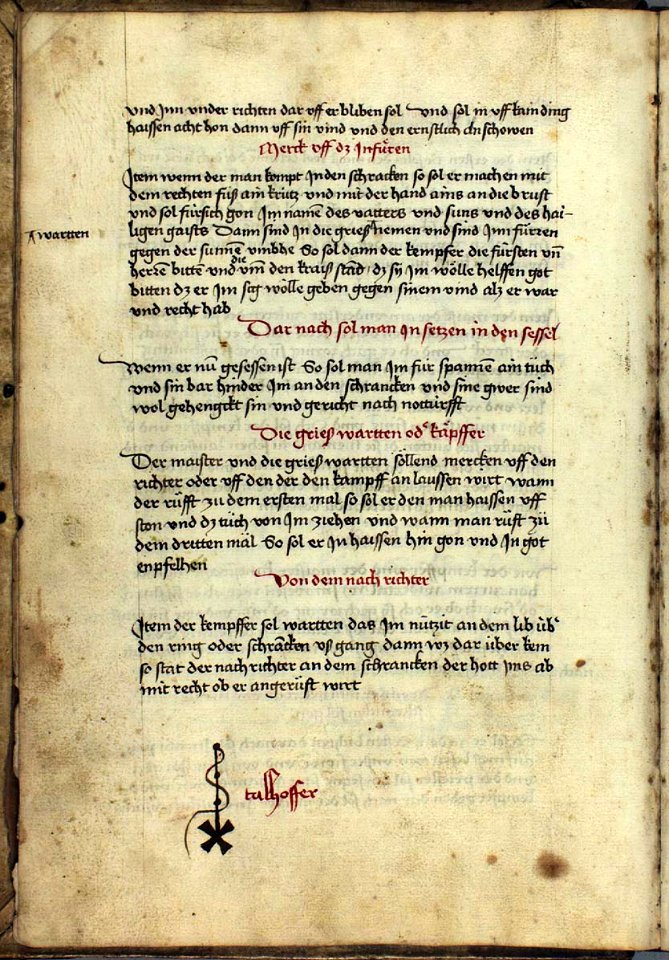 vnd Inn vnder richten dar vff er bliben sol vnd sol in vff kain ding
haissen acht hon dann vff sin vind vnd den ernstlich An schowen
Merck vff dz Infüren
Item wenn der man kompt In den schrancken so sol er machen mit
dem rechten fůß ain krütz vnd mit der hand ains an die brust
vnd sol fürsich gon Im namen des vatters vnd suns vnd des hai-
ligen gaists Dann sind In die grieß nemen vnd sind Im fürren
wartten
gegen der sunnē vmbhe So sol dann der kempfer die fürsten vn̄
herrē bitten vnd die vmm den kraiß stand dz sÿ Im wölle helffen got
bitten dz er Im sig wölle geben gegen sinem vind alz er war
vnd recht hab
Dar nach sol man In setzen in den sessel
Wenn er nū gesessen ist So sol man Im für spannē ain tůch
vnd sin bar hinder Im an den schrancken vnd sine gwer sind
wol gehengckt sin vnd gericht nach notturfft
Die grieß wartten odr käpffer
Der maister vnd die grieß wartten söllend mercken vff den
richter oder vff den der den kampff an laussen wirt wann
der rüfft zu dem ersten mal so sol er den man haissen vff
ston vnd dz tůch von Im ziehen vnd wann man rüft zů
dem dritten mäl So sol er In haissen hin gon vnd In got
enpfelhen
Von dem nach richter
Item der kempffer sol wartten das Im nützit an dem lib übr
den ring oder schrancken vß gang dann wz dar über kem
so stat der nach richter an dem schrancken der hott Ims ab
mit recht ob er angerüft wirt
talhoffer